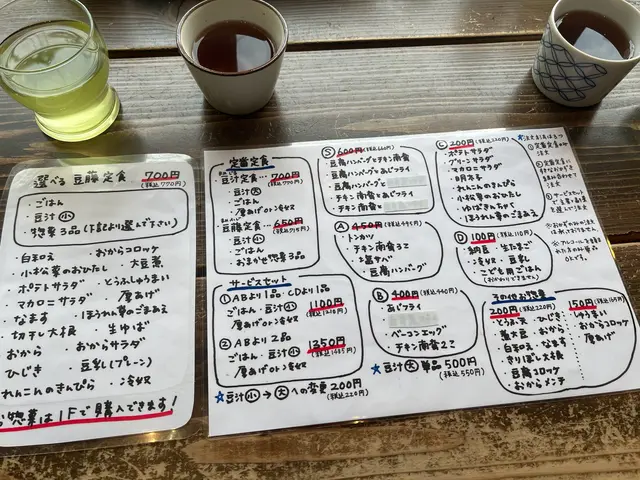 選べる 豆藤定食 700円
(税込770円)
・ごはん
・豆汁 小
・惣菜3品(下記より選んで下さい)
・白和え ・おからコロッケ
・小松菜のおひたし ・大豆煮
・ポテトサラダ ・とうふしゅうまい
・マカロニサラダ ・厚あげ
・なます ・ほうれん草のごまあえ
・切干し大根 ・生ゆば
・おから ・おからサラダ
・ひじき ・豆乳(プレーン)
・れんこんのきんぴら ・冷奴
お惣菜は1Fで購入できます!
定番定食
豆汁定食… 700円
(税込770円)
・豆汁 大
・ごはん
・厚あげor冷奴
豆藤定食… 650円
(税込715円)
・豆汁 小
・ごはん
・おまかせ惣菜3品
サービスセット
① ABより1品 CDより1品
ごはん・豆汁 小 1100円
厚あげor冷奴 (税込1210円)
② ABより2品
ごはん・豆汁 小 1350円
・厚あげor冷奴 (税込1485円)
☆豆汁 小 → 大 への変更 200円
(税込220円)
S 600円(税込660円)
・豆腐ハンバーグとチキン南蛮
・豆腐ハンバーグとあじフライ
・豆腐ハンバーグと
・チキン南蛮とあじフライ
・チキン南蛮と
A 450円(税込495円)
・トンカツ
・チキン南蛮3コ
・塩サバ
・豆腐ハンバーグ
B 400円(税込440円)
・あじフライ
・ベーコンエッグ
・チキン南蛮2コ
☆豆汁 大 単品 500円
(税込550円)
C 200円(税込220円)
・ポテトサラダ
・グリーンサラダ
・マカロニサラダ
・明太子
・れんこんのきんぴら
・小松菜のおひたし
・ゆずきんちゃく
・ほうれん草のごまあえ
D 100円(税込110円)
・納豆 ・生たまご
・冷奴 ・豆乳
・こども用ごはん
その他お惣菜
200円(税込220円) 150円(税込165円)
・とうふ天 ・ひじき ・しゅうまい
・煮大豆 ・おから ・おからコロッケ
・白和え ・なます ・厚あげ
・きりぼし大根
・豆腐コロッケ
・おからメンチ